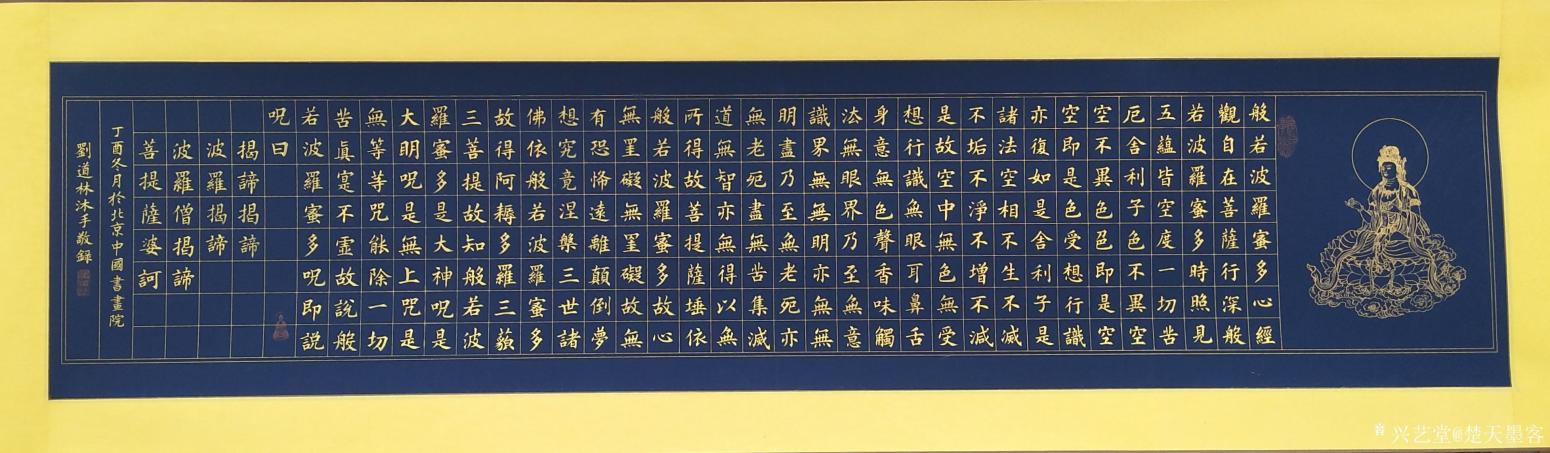 般若波羅蜜多心經
觀自在菩薩行深般
若波羅蜜多時照見
五蘊皆空度一切苦
厄舍利子色不異空
空不異色色即是空
空即是色受想行識
亦復如是舍利子是
諸法空相不生不滅
不垢不淨不增不減
是故空中無色無受
想行識無眼耳鼻舌
身意無色聲香味觸
法無眼界乃至無意
識界無無明亦無無
明盡乃至無老死亦
無老死盡無苦集滅
道無智亦無得以無
所得故菩提薩埵依
般若波羅蜜多故心
無罣礙無罣礙故無
有恐怖遠離顛倒夢
想究竟涅槃三世諸
佛依般若波羅蜜多
故得阿耨多羅三藐
三菩提故知般若波
羅蜜多是大神呪是
大明呪是無上咒是
無等等咒能除一切
苦真寔不虛故說般
若波羅蜜多呪即説
呪曰
揭諦揭諦
波羅揭諦
波羅僧揭諦
菩提薩婆訶
丁酉冬月於北京中國書畫院
劉道林沐手敬録
兴艺堂@楚天墨客